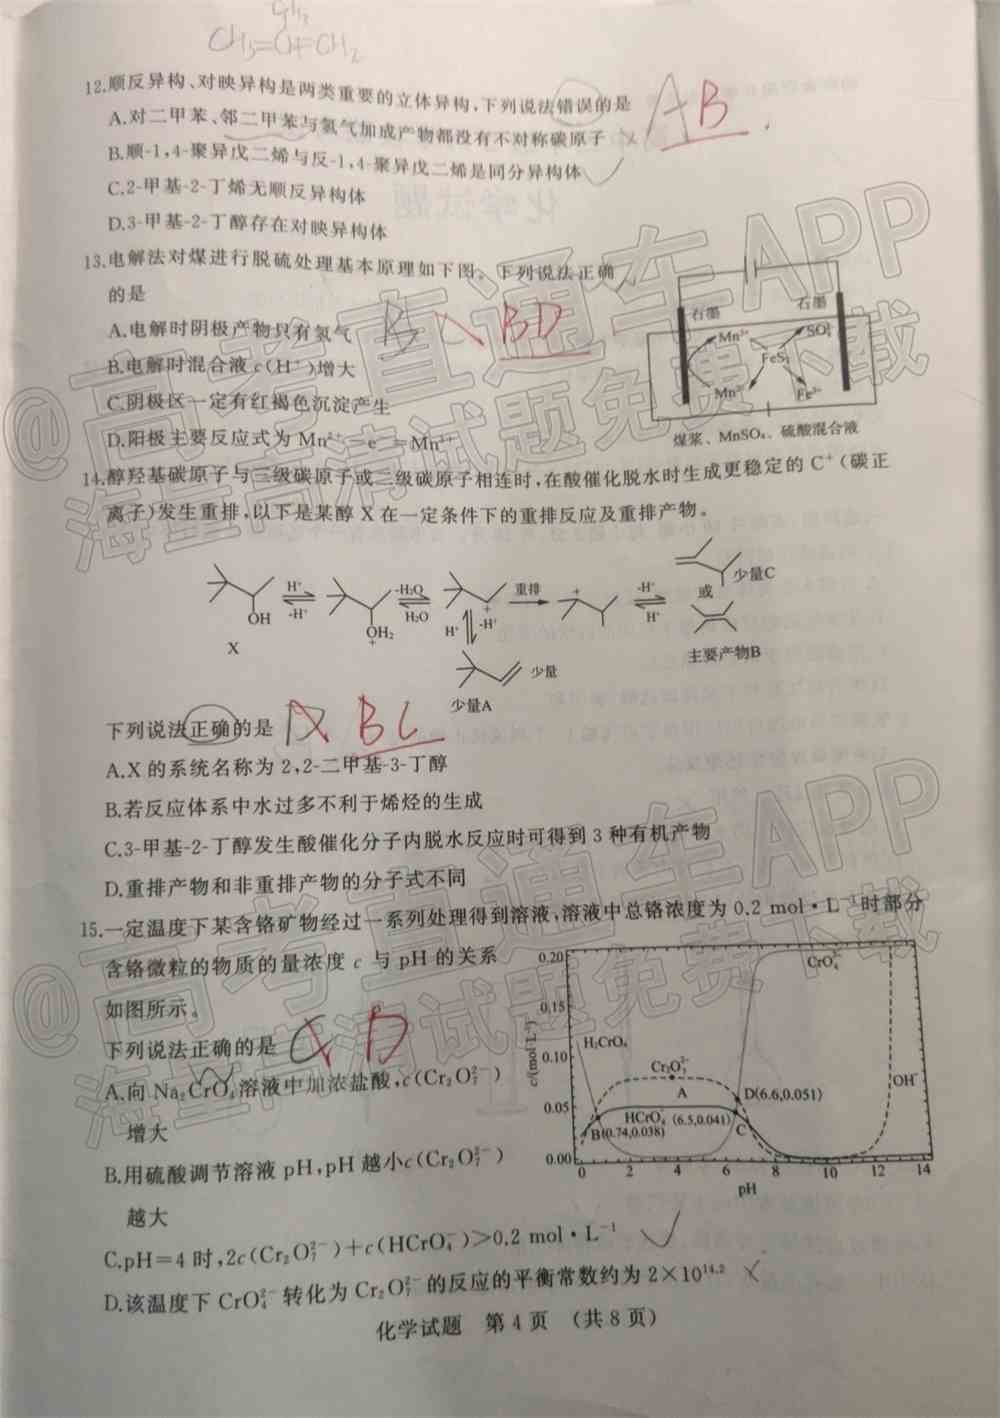 CH₃
CH₃=CH-CH₂
12.顺反异构、对映异构是两类重要的立体异构,下列说法错误的是
AB
A.对二甲苯、邻二甲苯与氢气加成产物都没有不对称碳原子
B.顺-1,4-聚异戊二烯与反-1,4-聚异戊二烯是同分异构体
C.2-甲基-2-丁烯无顺反异构体
D.3-甲基-2-丁醇存在对映异构体
13.电解法对煤进行脱硫处理基本原理如下图。下列说法正确
的是
B BD
A.电解时阴极产物只有氢气
B.电解时混合液c(H⁺)增大
C.阴极区一定有红褐色沉淀产生
D.阳极主要反应式为Mn²⁺-e⁻=Mn³⁺
石墨
石墨
Mn³⁺
SO₄²⁻
FeS₂
Mn²⁺
Fe³⁺
煤浆、MnSO₄、硫酸混合液
14.醇羟基碳原子与三级碳原子或二级碳原子相连时,在酸催化脱水时生成更稳定的C⁺(碳正
离子)发生重排,以下是某醇X在一定条件下的重排反应及重排产物。
OH
X
H⁺
-H⁺
OH₂
+
-H₂O
H₂O
+
重排
+
-H⁺
H⁺
少量C
或
主要产物B
H⁺ -H⁺
少量
少量A
下列说法正确的是
BC
A.X的系统名称为2,2-二甲基-3-丁醇
B.若反应体系中水过多不利于烯烃的生成
C.3-甲基-2-丁醇发生酸催化分子内脱水反应时可得到3种有机产物
D.重排产物和非重排产物的分子式不同
15.一定温度下某含铬矿物经过一系列处理得到溶液,溶液中总铬浓度为0.2 mol·L⁻¹时部分
含铬微粒的物质的量浓度c与pH的关系
如图所示。
下列说法正确的是
D
A.向Na₂CrO₄溶液中加浓盐酸,c(Cr₂O₇²⁻)
增大
B.用硫酸调节溶液pH,pH越小c(Cr₂O₇²⁻)
越大
C.pH=4时,2c(Cr₂O₇²⁻)+c(HCrO₄⁻)>0.2 mol·L⁻¹
D.该温度下CrO₄²⁻转化为Cr₂O₇²⁻的反应的平衡常数约为2×10¹⁴·²
c/(mol·L⁻¹)
0.20
0.15
0.10
0.05
0.00
0 2 4 6 8 10 12 14
pH
H₂CrO₄
CrO₄²⁻
Cr₂O₇²⁻
A
HCrO₄⁻
(6.5,0.041)
B(0.74,0.038)
C
D(6.6,0.051)
OH⁻
化学试题 第4页 (共8页)
@高考直通车APP
海量高清试题免费下载
@高考直通车APP
海量高清试题免费下载